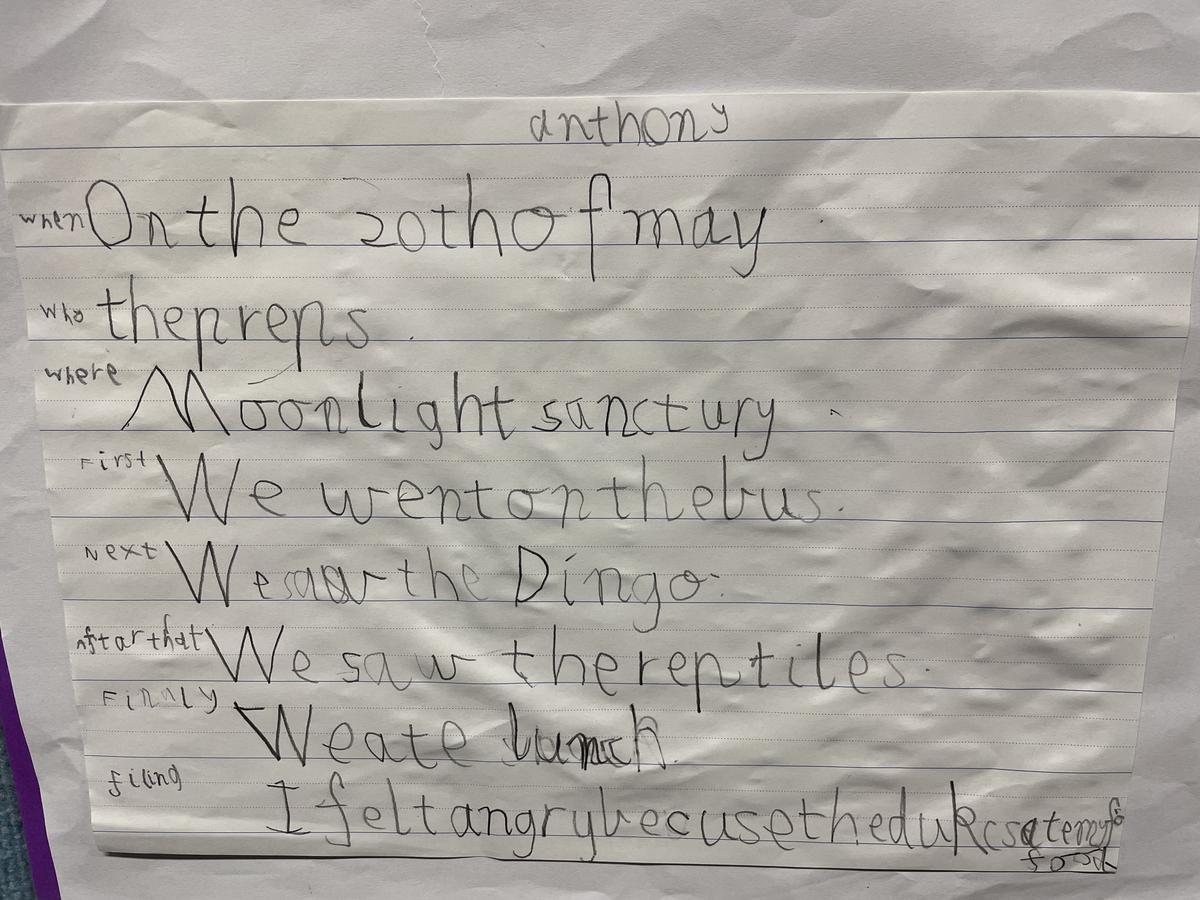 anthony
when On the 20th of may
who the preps.
where Moonlight sanctury
First We went on the bus.
Next We saw the Dingo.
aftar that We saw the reptiles.
Finaly We ate lunch.
filing I felt angry becuse the dukcs ate my
food